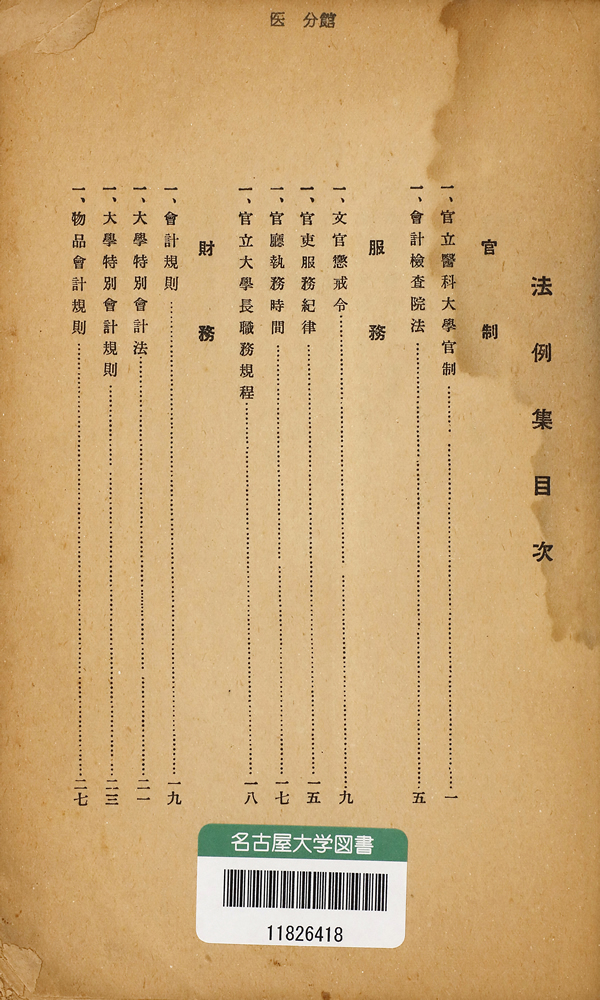 医 分館
法例集目次
官制
一、官立醫科大學官制……一
一、會計檢査院法……五
服務
一、文官懲戒令……九
一、官吏服務紀律……一五
一、官廳執務時間……一七
一、官立大學長職務規程……一八
財務
一、會計規則……一九
一、大學特別會計法……二一
一、大學特別會計規則……二三
一、物品會計規則……二七
名古屋大学図書
11826418